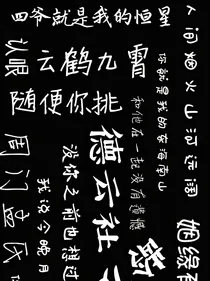 四爷就是我的恒星
认眼
云鹤九霄
随便你挑
人间烟火山河远阔
你就是我的玄海南山
和他在一起没有遗憾
德云社
没你之前也想过
我说今晚月
周门
姻缘